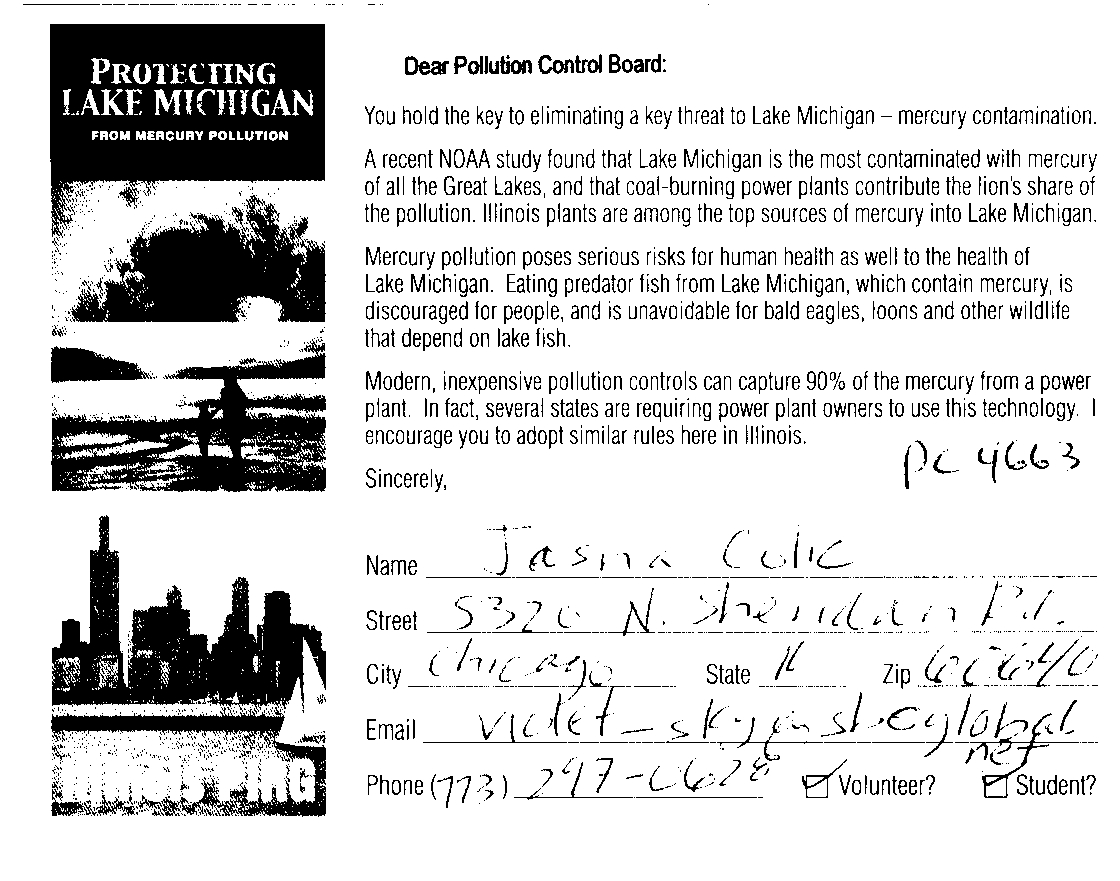 PROTECTING
LAKE MICHIGAN
FROM MERCURY POLLUTION
Dear Pollution Control Board:
You hold the key to eliminating a key threat to Lake Michigan – mercury contamination.
A recent NOAA study found that Lake Michigan is the most contaminated with mercury
of all the Great Lakes, and that coal-burning power plants contribute the lion's share of
the pollution. Illinois plants are among the top sources of mercury into Lake Michigan.
Mercury pollution poses serious risks for human health as well to the health of
Lake Michigan. Eating predator fish from Lake Michigan, which contain mercury, is
discouraged for people, and is unavoidable for bald eagles, loons and other wildlife
that depend on lake fish.
Modern, inexpensive pollution controls can capture 90% of the mercury from a power
plant. In fact, several states are requiring power plant owners to use this technology. I
encourage you to adopt similar rules here in Illinois.
PC 4663
Sincerely,
Name Jasna Colic
Street 5320 N. Sheridan Rd.
City Chicago State IL Zip 60640
Email violet_sky@sbcglobal
net
Phone (773) 297-0628 Volunteer? Student?
Illinois PIRG